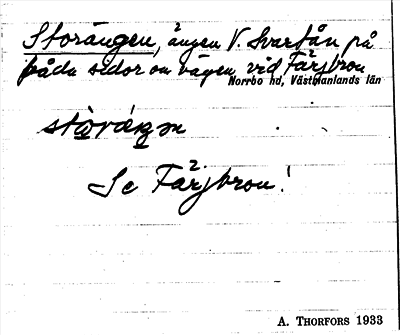 Storängen, ängen V. Svartån på
båda sidor om vägen vid Färjbron
Norrbo hd, Västmanlands län
Se Färjbron!
A. THORFORS 1933